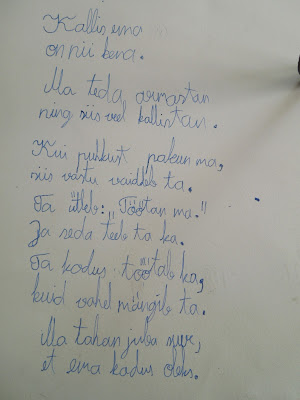 Kallis ema
on nii hena.
Ma teda armastan
ning siis veel kallistan.
Kui puhkust pakun ma,
siis vastu vaidleb ta.
Ta ütleb: "Töötan ma."
Ja seda teeb ta ka.
Ta kodus töötab ka,
kuid vahel mängib ta.
Ma tahan juba
et ema kodus oleks.